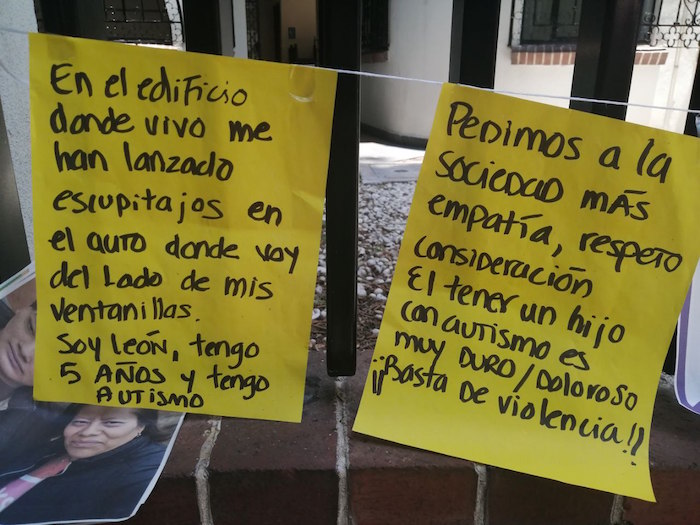 En el edificio
donde vivo me
han lanzado
escupitajos en
el auto donde voy
del lado de mis
ventanillas.
Soy León, tengo
5 AÑOS y tengo
AUTISMO
PEDIMOS a la
SOCIEDAD MÁS
empatía, respeto
consideración
El tener un hijo
con autismo es
MUY DURO/DOLOROSO
¡¡Basta DE violencia!!